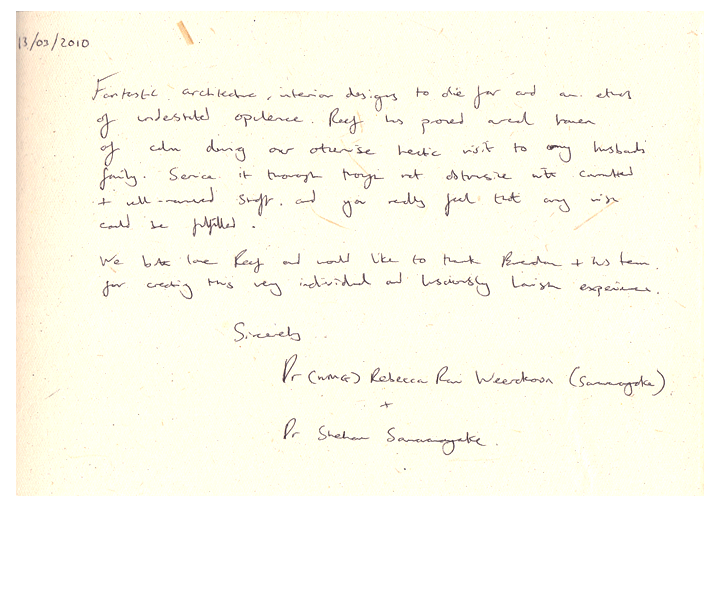 13/03/2010
Fantastic architecture, interior designs to die for and an ethos
of understated opulence. Reef has proved a real haven
of calm during our otherwise hectic visit to my husbands
family. Service is thorough though not obtrusive with committed
+ well-mannered staff, and you really feel that any wish
could be fulfilled.
We both love Reef and would like to thank + his team
for creating this very individual and lusciously lavish experience.
Sincerely
Dr (Mrs) Rebecca Weerakoon (Samaranayake)
+
Dr Shehan Samaranayake.